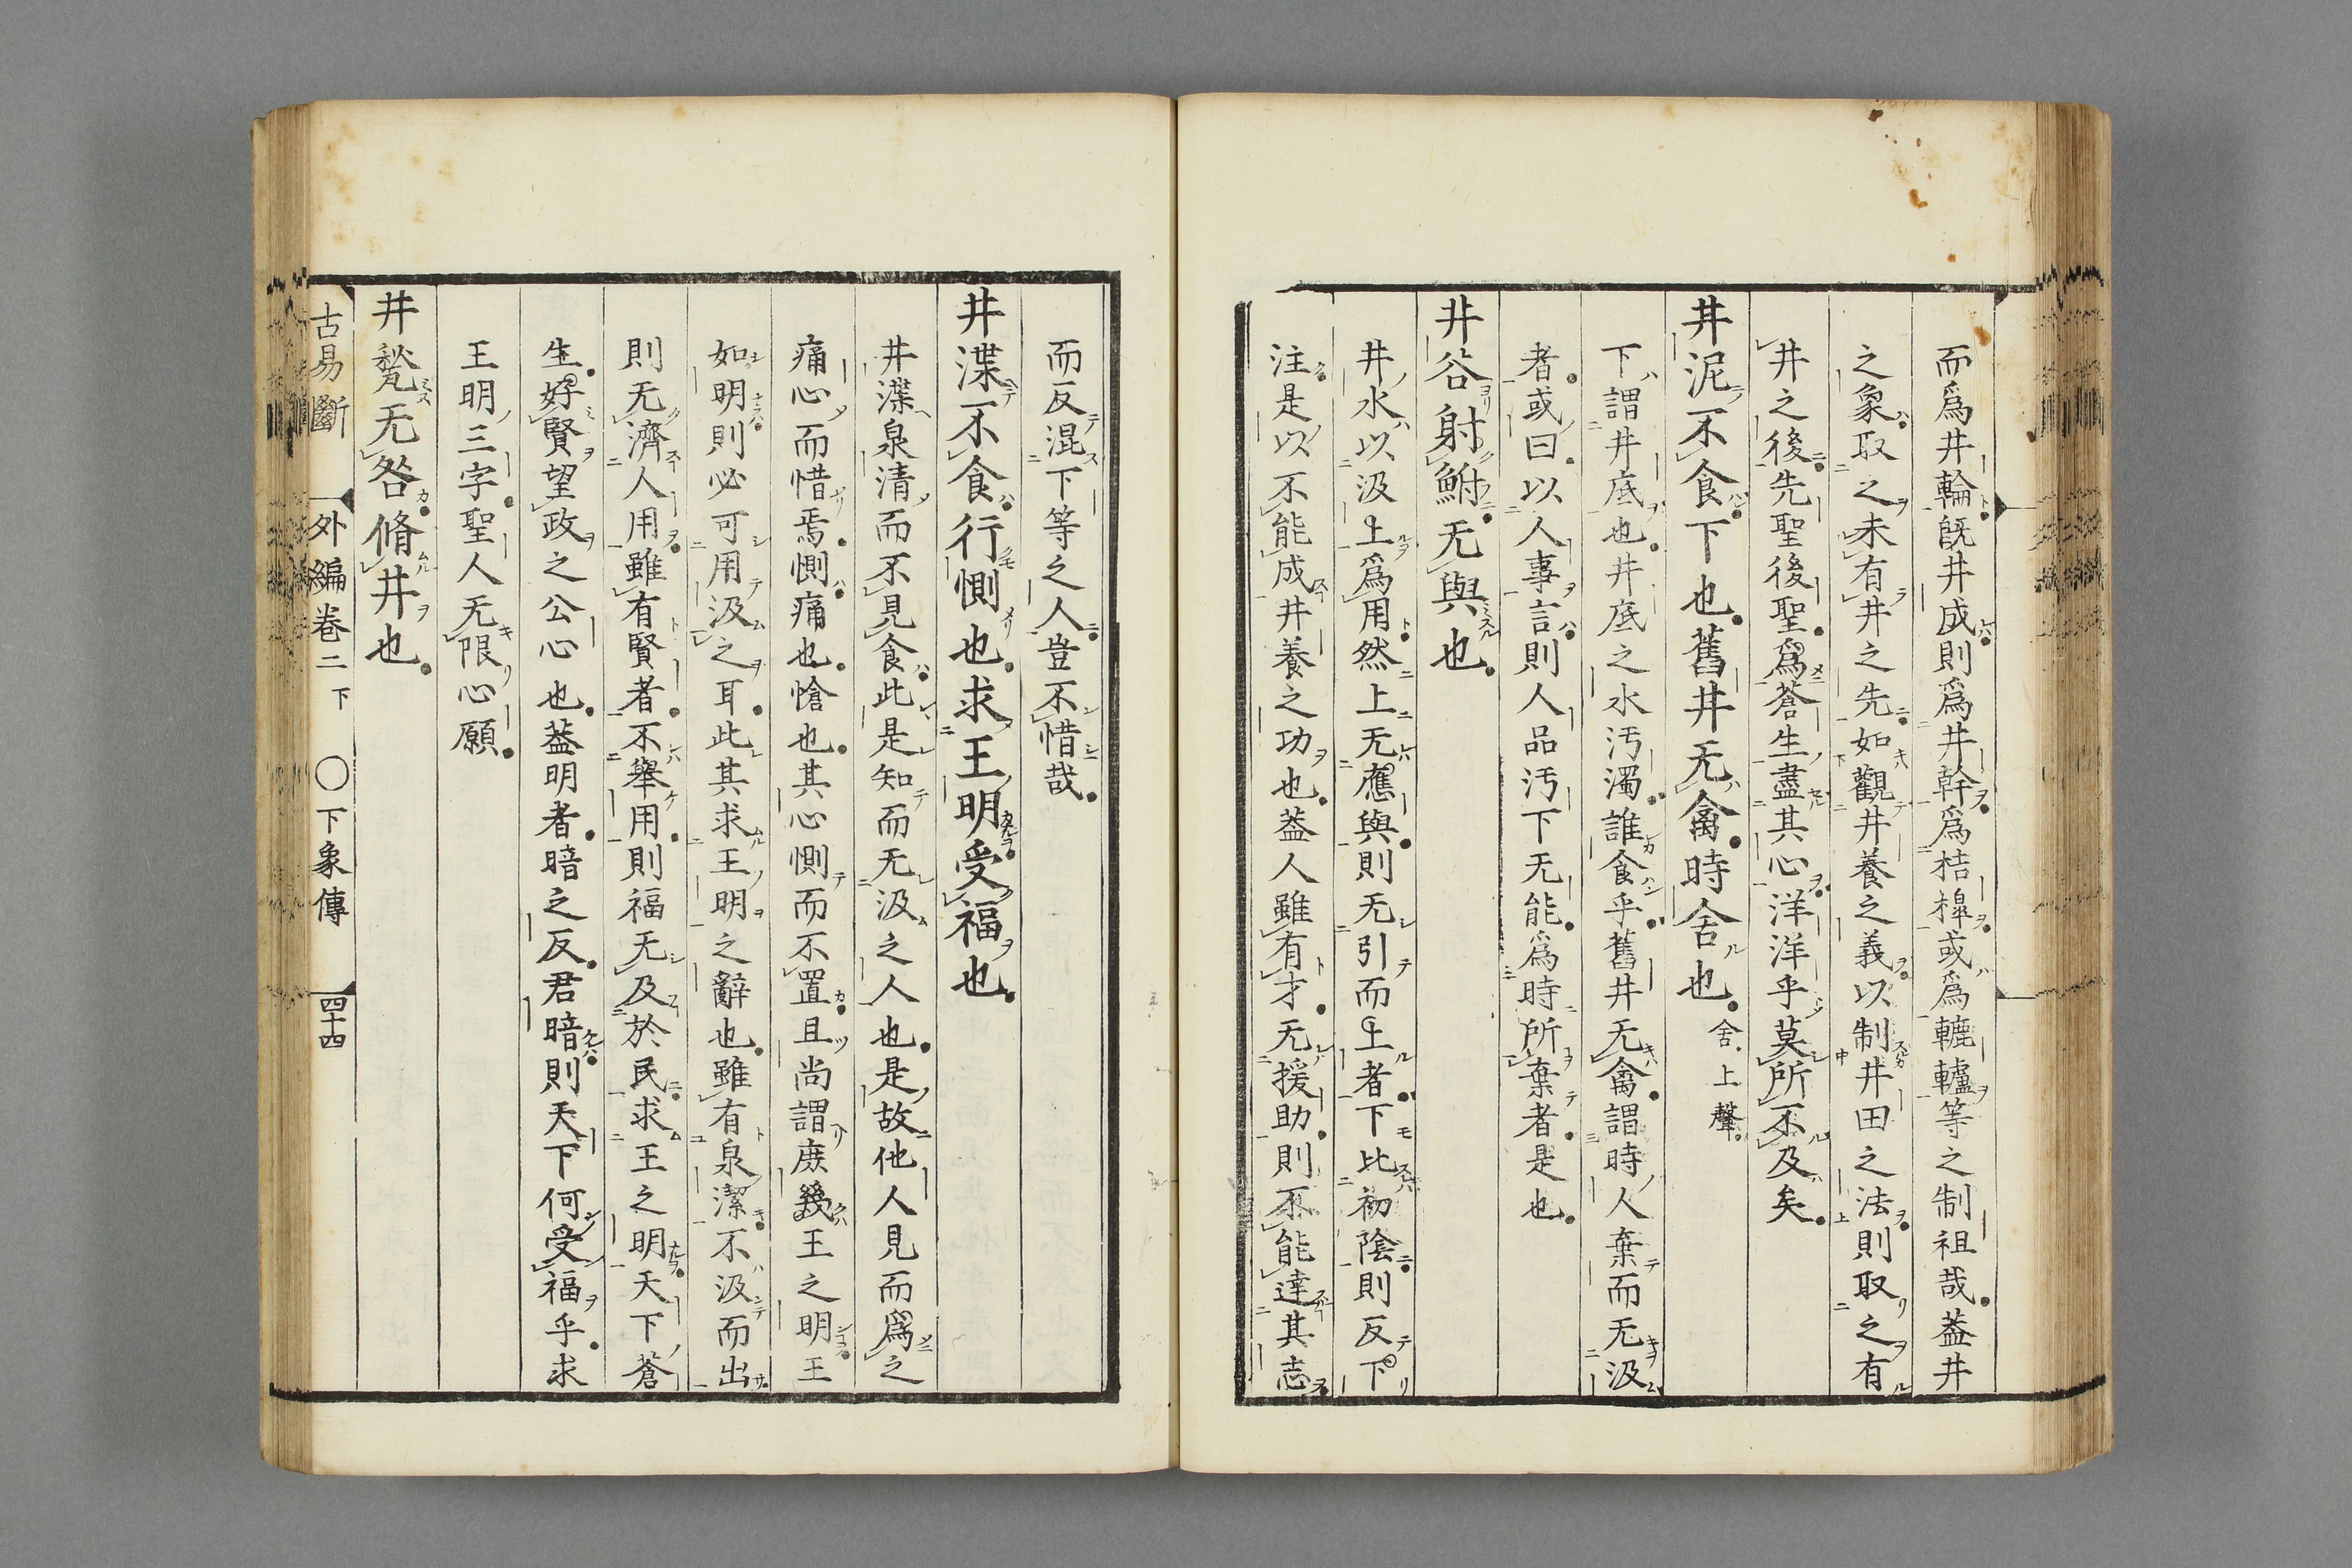 而爲井輪既井成則爲井幹爲桔槹或爲轆轤等之制祖哉蓋井
之象取之未有井之先如觀井養之義以制井田之法則取之有
井之後先聖後聖爲蒼生盡其心洋洋乎莫所不及矣
井泥不食下也舊井无禽時舍也舍上聲
下謂井底也井底之水汚濁誰食乎舊井无禽謂時人棄而无汲
者或曰以人事言則人品汚下无能爲時所棄者是也
井谷射鮒无與也
井水以汲上爲用然上无應與則无引而上者下比初陰則反下
注是以不能成井養之功也蓋人雖有才无援助則不能達其志
而反混下等之人豈不惜哉
井渫不食行惻也求王明受福也
井渫泉清而不見食此是知而无汲之人也是故他人見而爲之
痛心而惜焉惻痛也愴也其心惻而不置且尚謂庶幾王之明王
如明則必可用汲之耳此其求王明之辭也雖有泉潔不汲而出
則无濟人用雖有賢者不舉用則福无及於民求王之明天下蒼
生好賢望政之公心也蓋明者暗之反君暗則天下何受福乎求
王明三字聖人无限心願
井甃无咎脩井也
古易斷 外編卷二下 〇下象傳 四十四